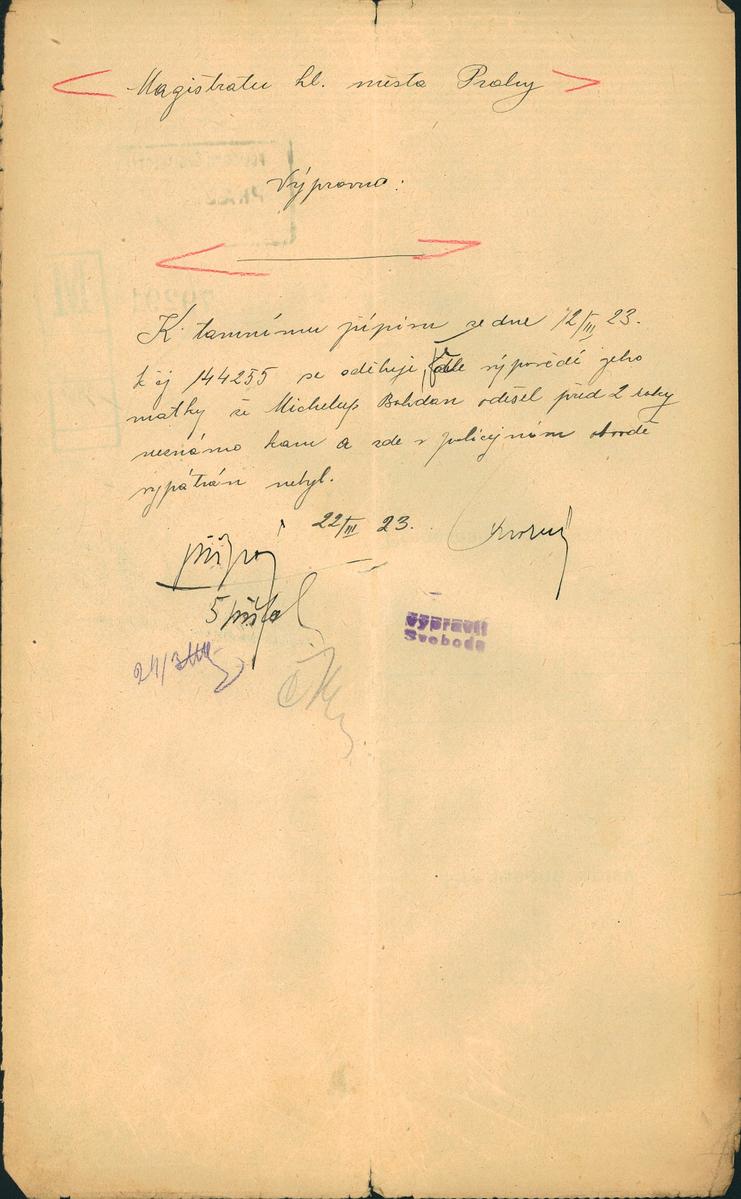 Magistrátu hl. města Prahy
Výpravna:
K tamnímu přípisu ze dne 12/III 23.
k čj 144255 se sděluje, dle výpovědi jeho
matky že Michelup Bohdan odešel před 2 roky
neznámo kam a zde v policejním obvodě
vypátrán nebyl.
22/III 23.
5 příl
24/3
Vypravit
Svoboda